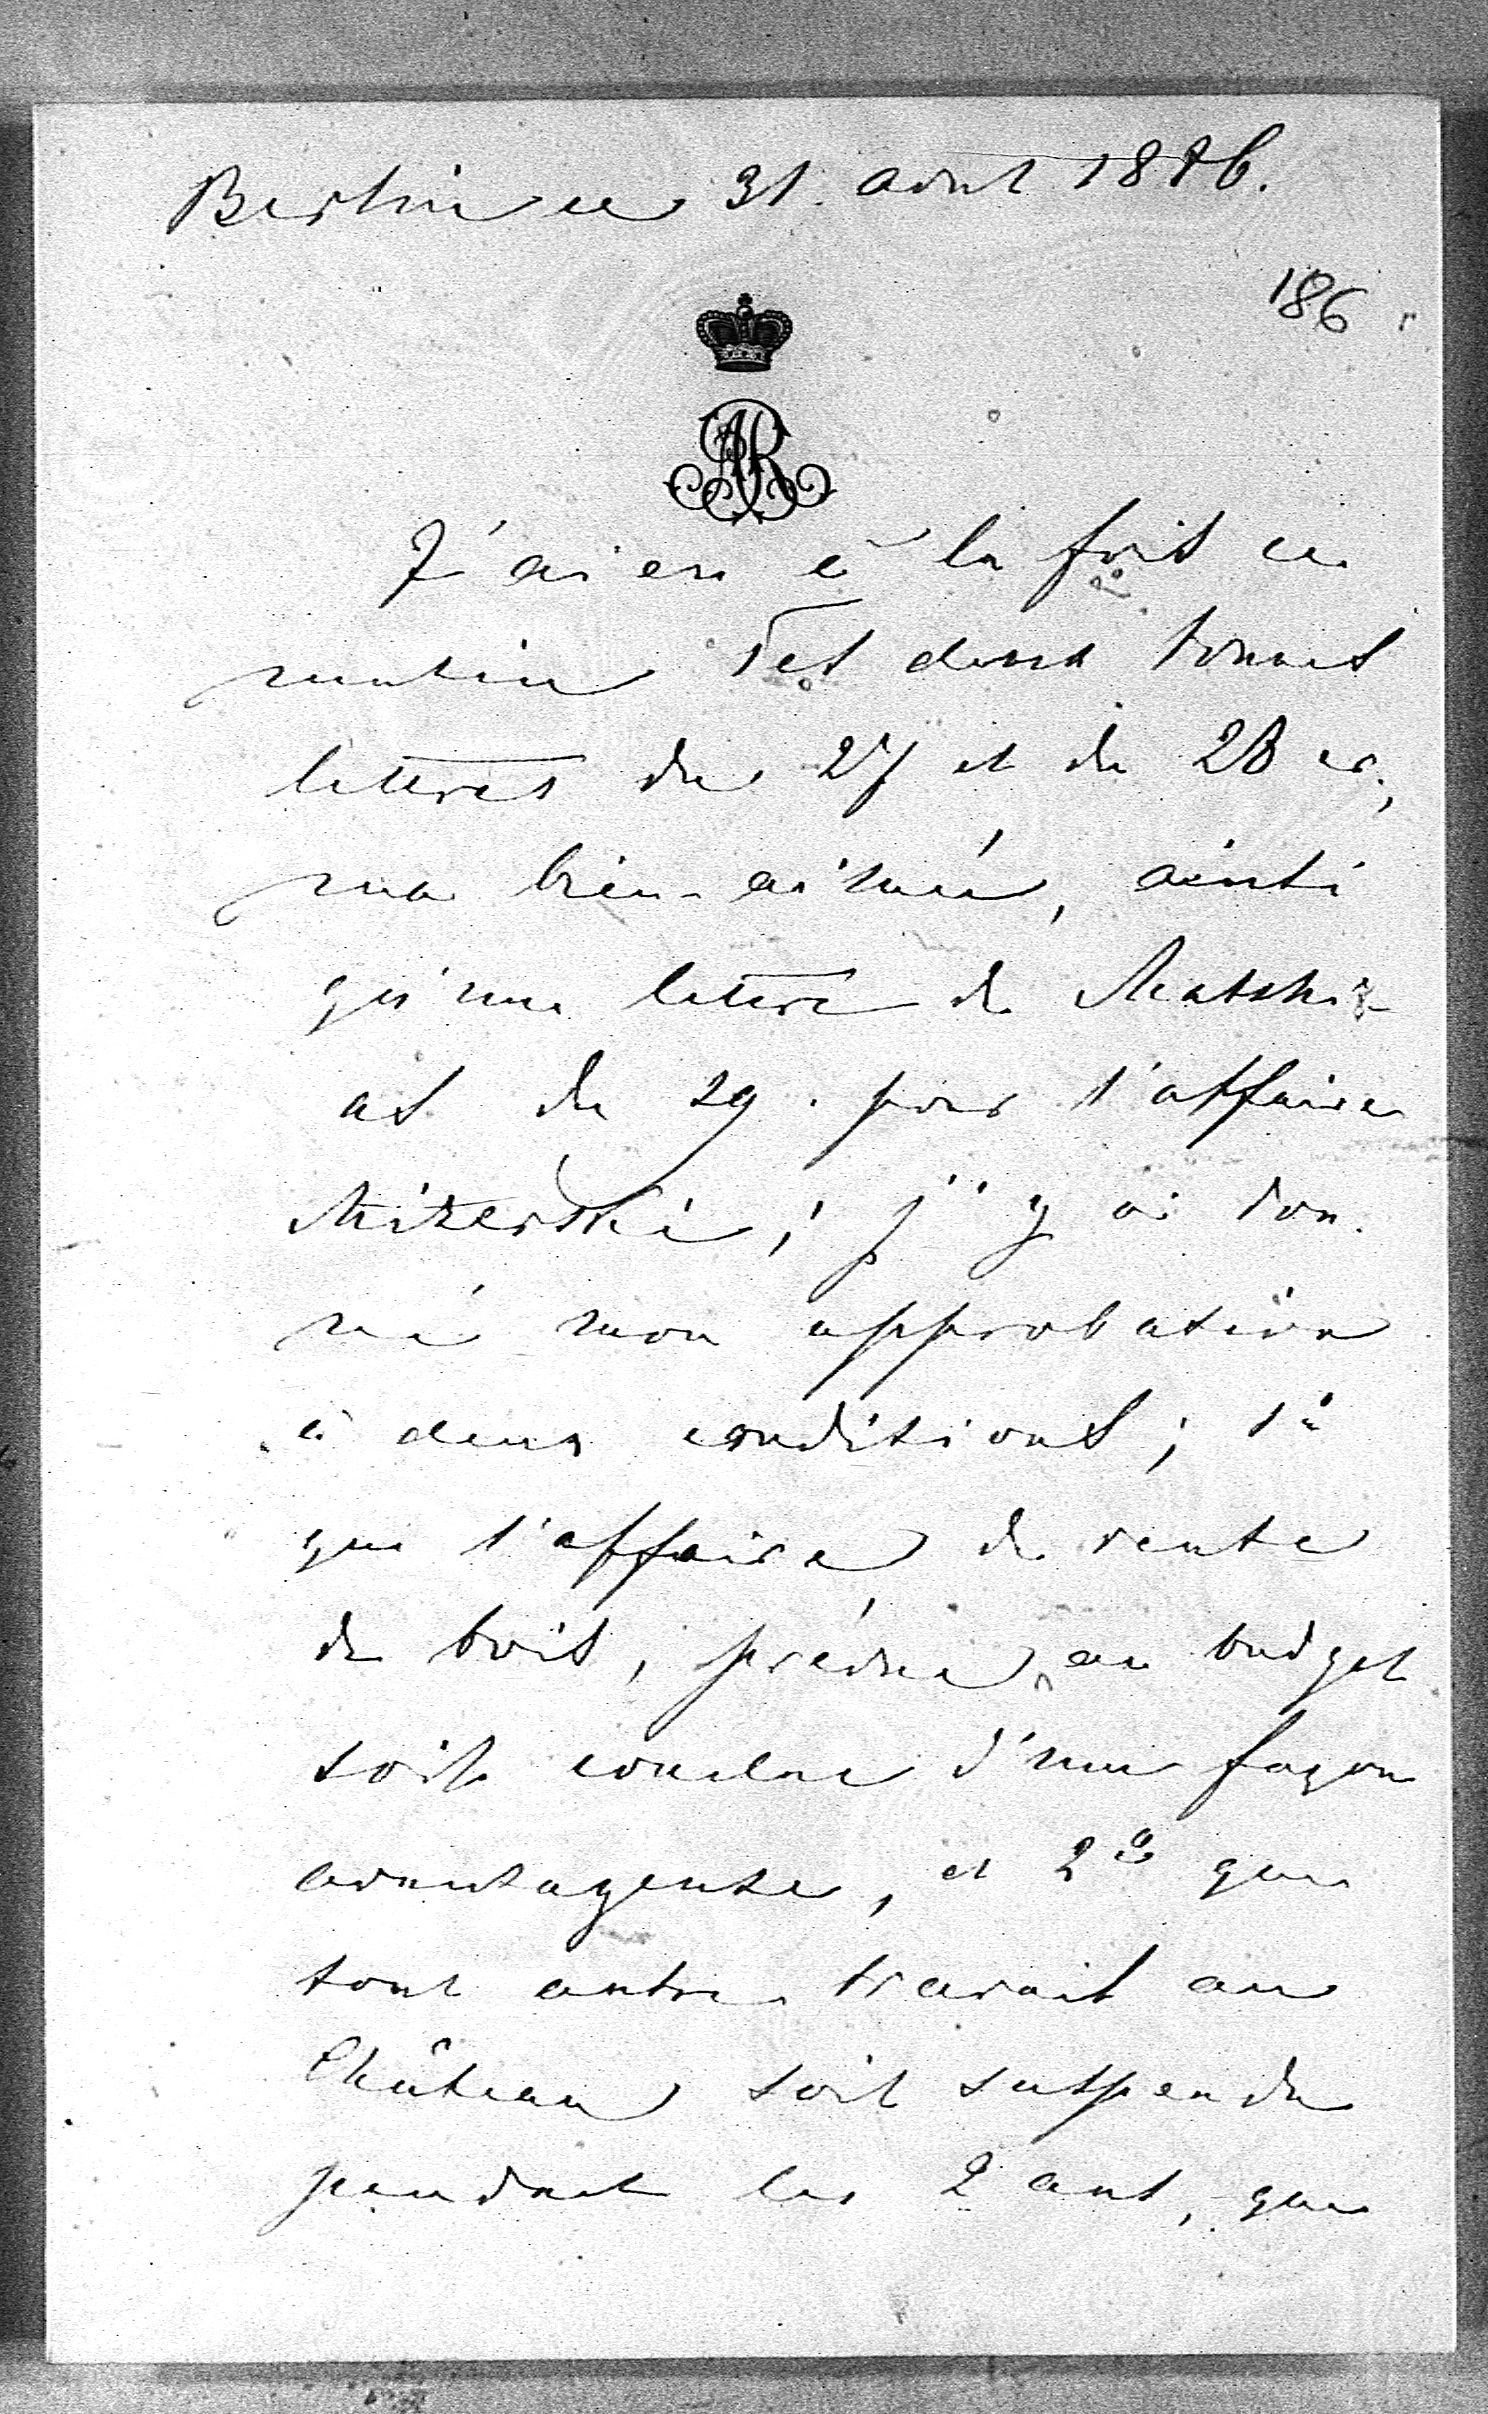 Berlin ce 31. août 1876.
186
AR
J'ai eu à la fois ce
matin Tes deux bonnes
lettres du 27 et du 28 cr.,
ma bien-aimée, ainsi
qu'une lettre de
at du 29. pour l'affaire
Mizerski; j'y ai don-
né mon approbation
à deux conditions; 1°
que l'affaire de vente
de bois, prévue au budget
soit conclue d'une façon
avantageuse, et 2° que
tout autre travail au
Château soit suspendu
pendant les 2 ans, que